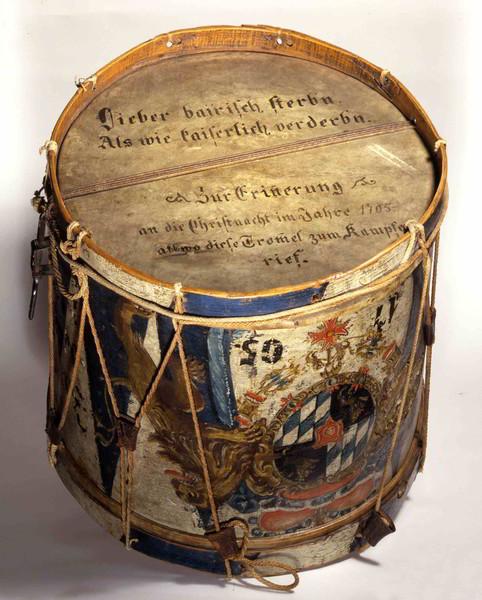 Lieber bairisch sterbn.
Als wie kaiserlich verderbn.
Zur Erinerung
an die Christnacht im Jahre 1705
allwo diese Tromel zum Kampfe
rief.